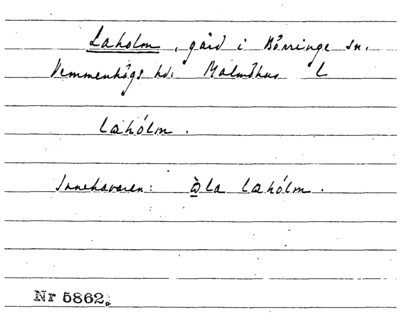 Laholm, gård i Börringe sn.
Vemmenhögs hd. Malmöhus L
læhólm.
Innehavaren: ola læhólm.
Nr 5862.